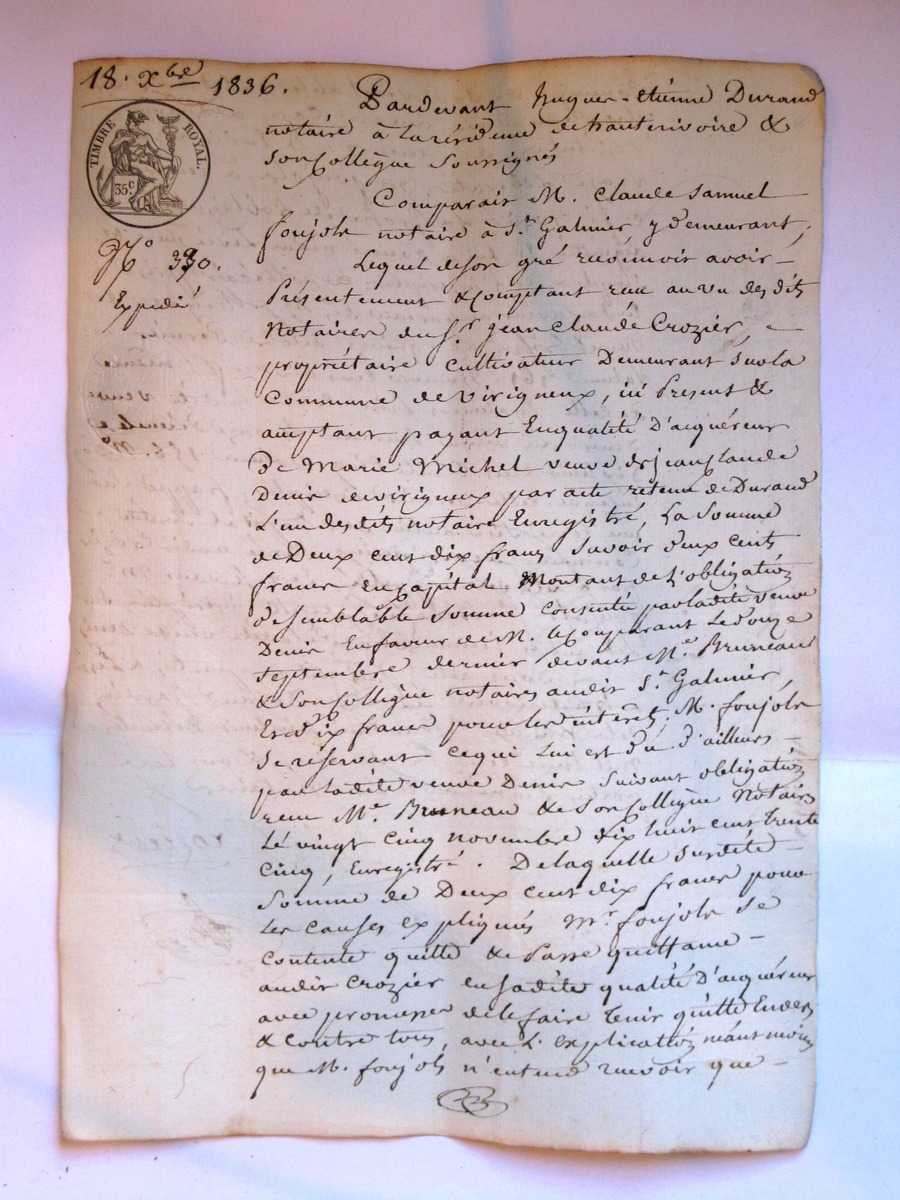 18. Xbre 1836.
TIMBRE ROYAL.
35c
No 330.
Expédié
Pardevant hugues-etienne Durand
notaire à la résidence de hauterivoire &
son Collègue Soussignés
Comparait M. Claude Samuel
foujols notaire à St Galmier, y demeurant,
Lequel de son gré reconnoit avoir
Présentement & comptant reçu au vu des dits
Notaires du Sr. jean Claude Crozier,
propriétaire cultivateur Demeurant sur la
Commune de Virigneux, ici Présent &
acceptant payant En qualité D'acquéreur
De Marie Michel veuve de jean Claude
Denis de virigneux par acte retenu de Durand
L'un des dits notaire Enregistré, La Somme
de Deux cent dix francs savoir deux cents
francs en capital Montant de L'obligation
de semblable Somme consentie par ladite veuve
Denis En faveur de M. le Comparant Le douze
septembre dernier devant Me. Bruneau
& Son Collègue notaires audit St. Galmier,
Et dix francs pour les intérêts, M. foujols
se réservant ce qui Lui est dû d'ailleurs
par Ladite veuve Denis Suivant obligation
reçue Me. Bruneau & Son Collègue Notaires
Le vingt cinq novembre dix huit cent trente
Cinq, Enregistré. De laquelle Susdite
Somme de Deux cent dix francs pour
Les Causes expliquées Mr. foujols se
Contente quitte & Passe quittance
audit Crozier en sadite qualité D'acquéreur
avec promesse de le faire tenir quitte Envers
& contre tous, avec L'explication néantmoins
que M. foujols n'entend recevoir que